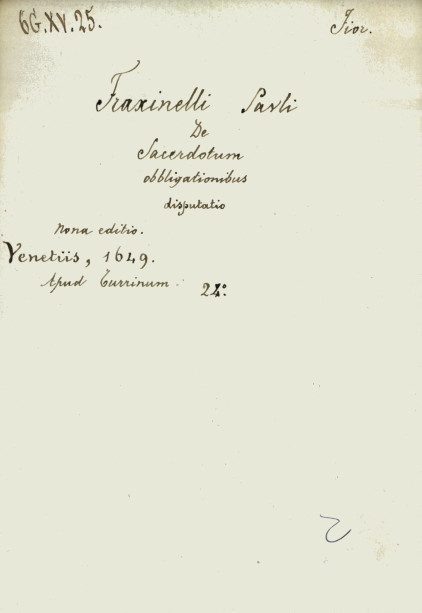 6G.XV.25. Fior.
Fraxinelli Pavli
De
Sacerdotum
obbligationibus
disputatio
Nona editio.
Venetiis, 1649.
Apud Turrinum. 24.º